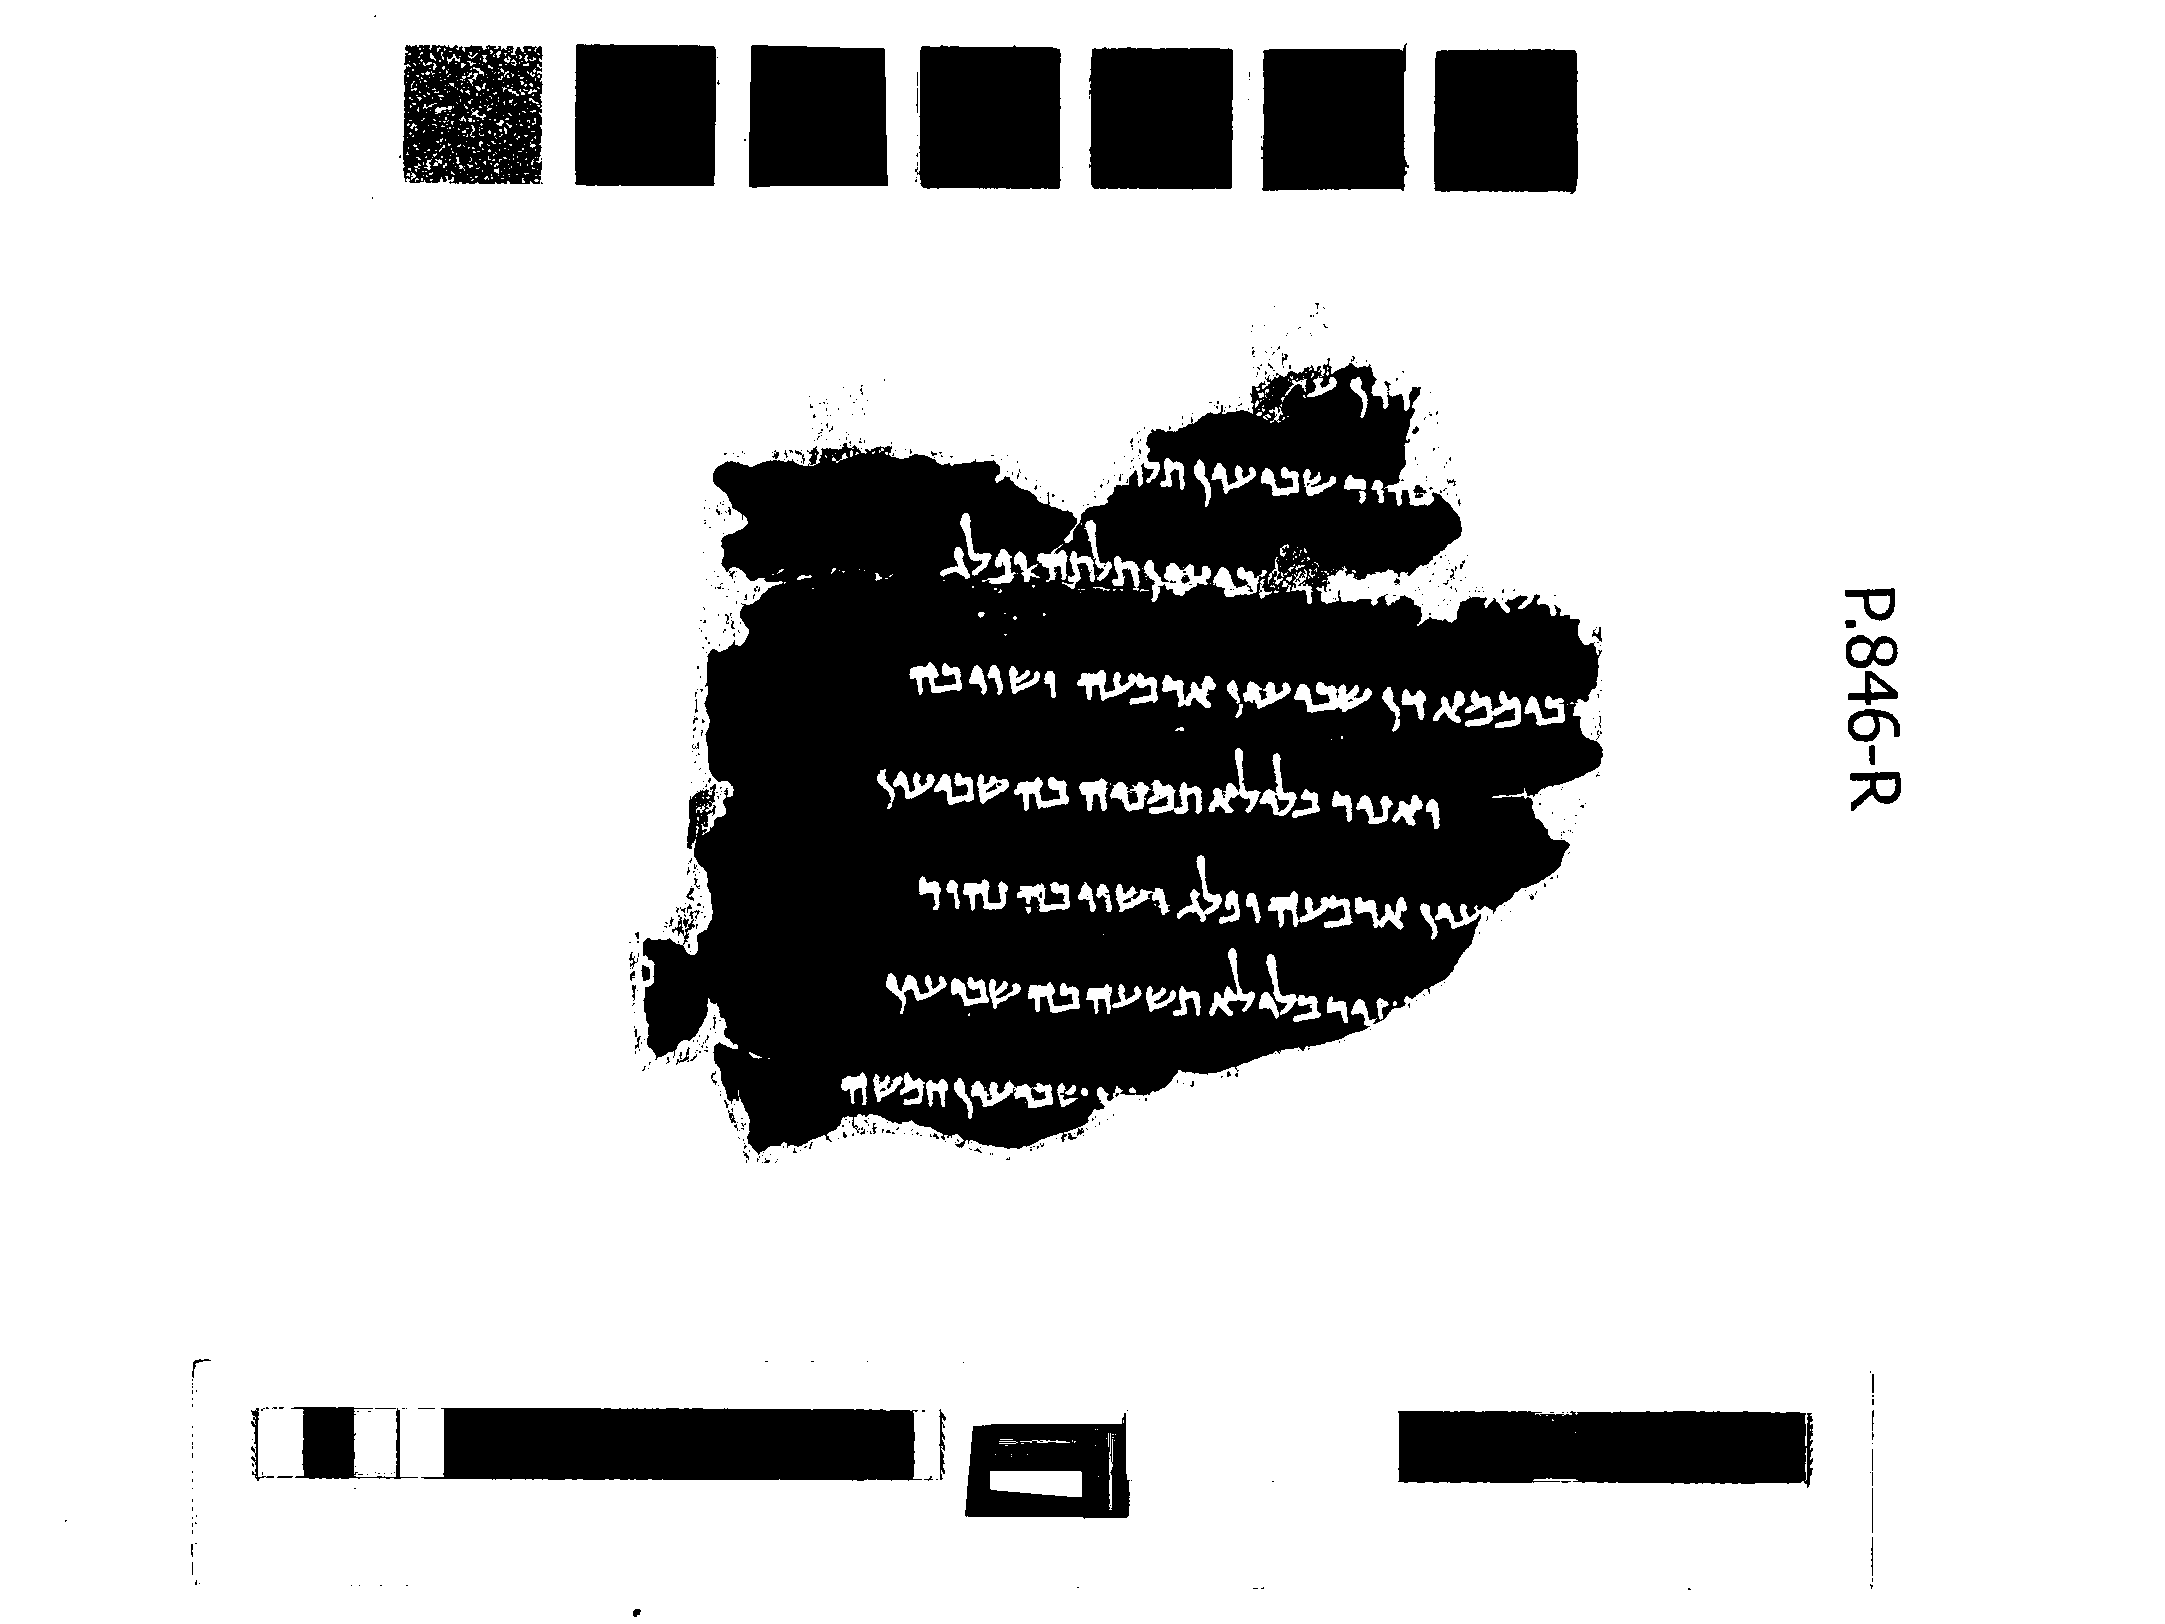 נהור שביעין תל
ביעין תלתה ופלג
ביממא דן שביעין ארבעה ושוי בה
ואניר בליליא תמניה בה שביעין
יעין ארבעה ופלג ושוי בה נהור
יניר בליליא תשעה בה שביעין
שביעין חמשה
P.846-R